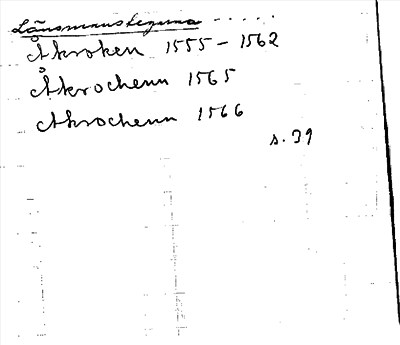 Länsmanstegarna . . . . .
Åkroken 1555 – 1562
Åkrochenn 1565
Akrochenn 1566
s. 39